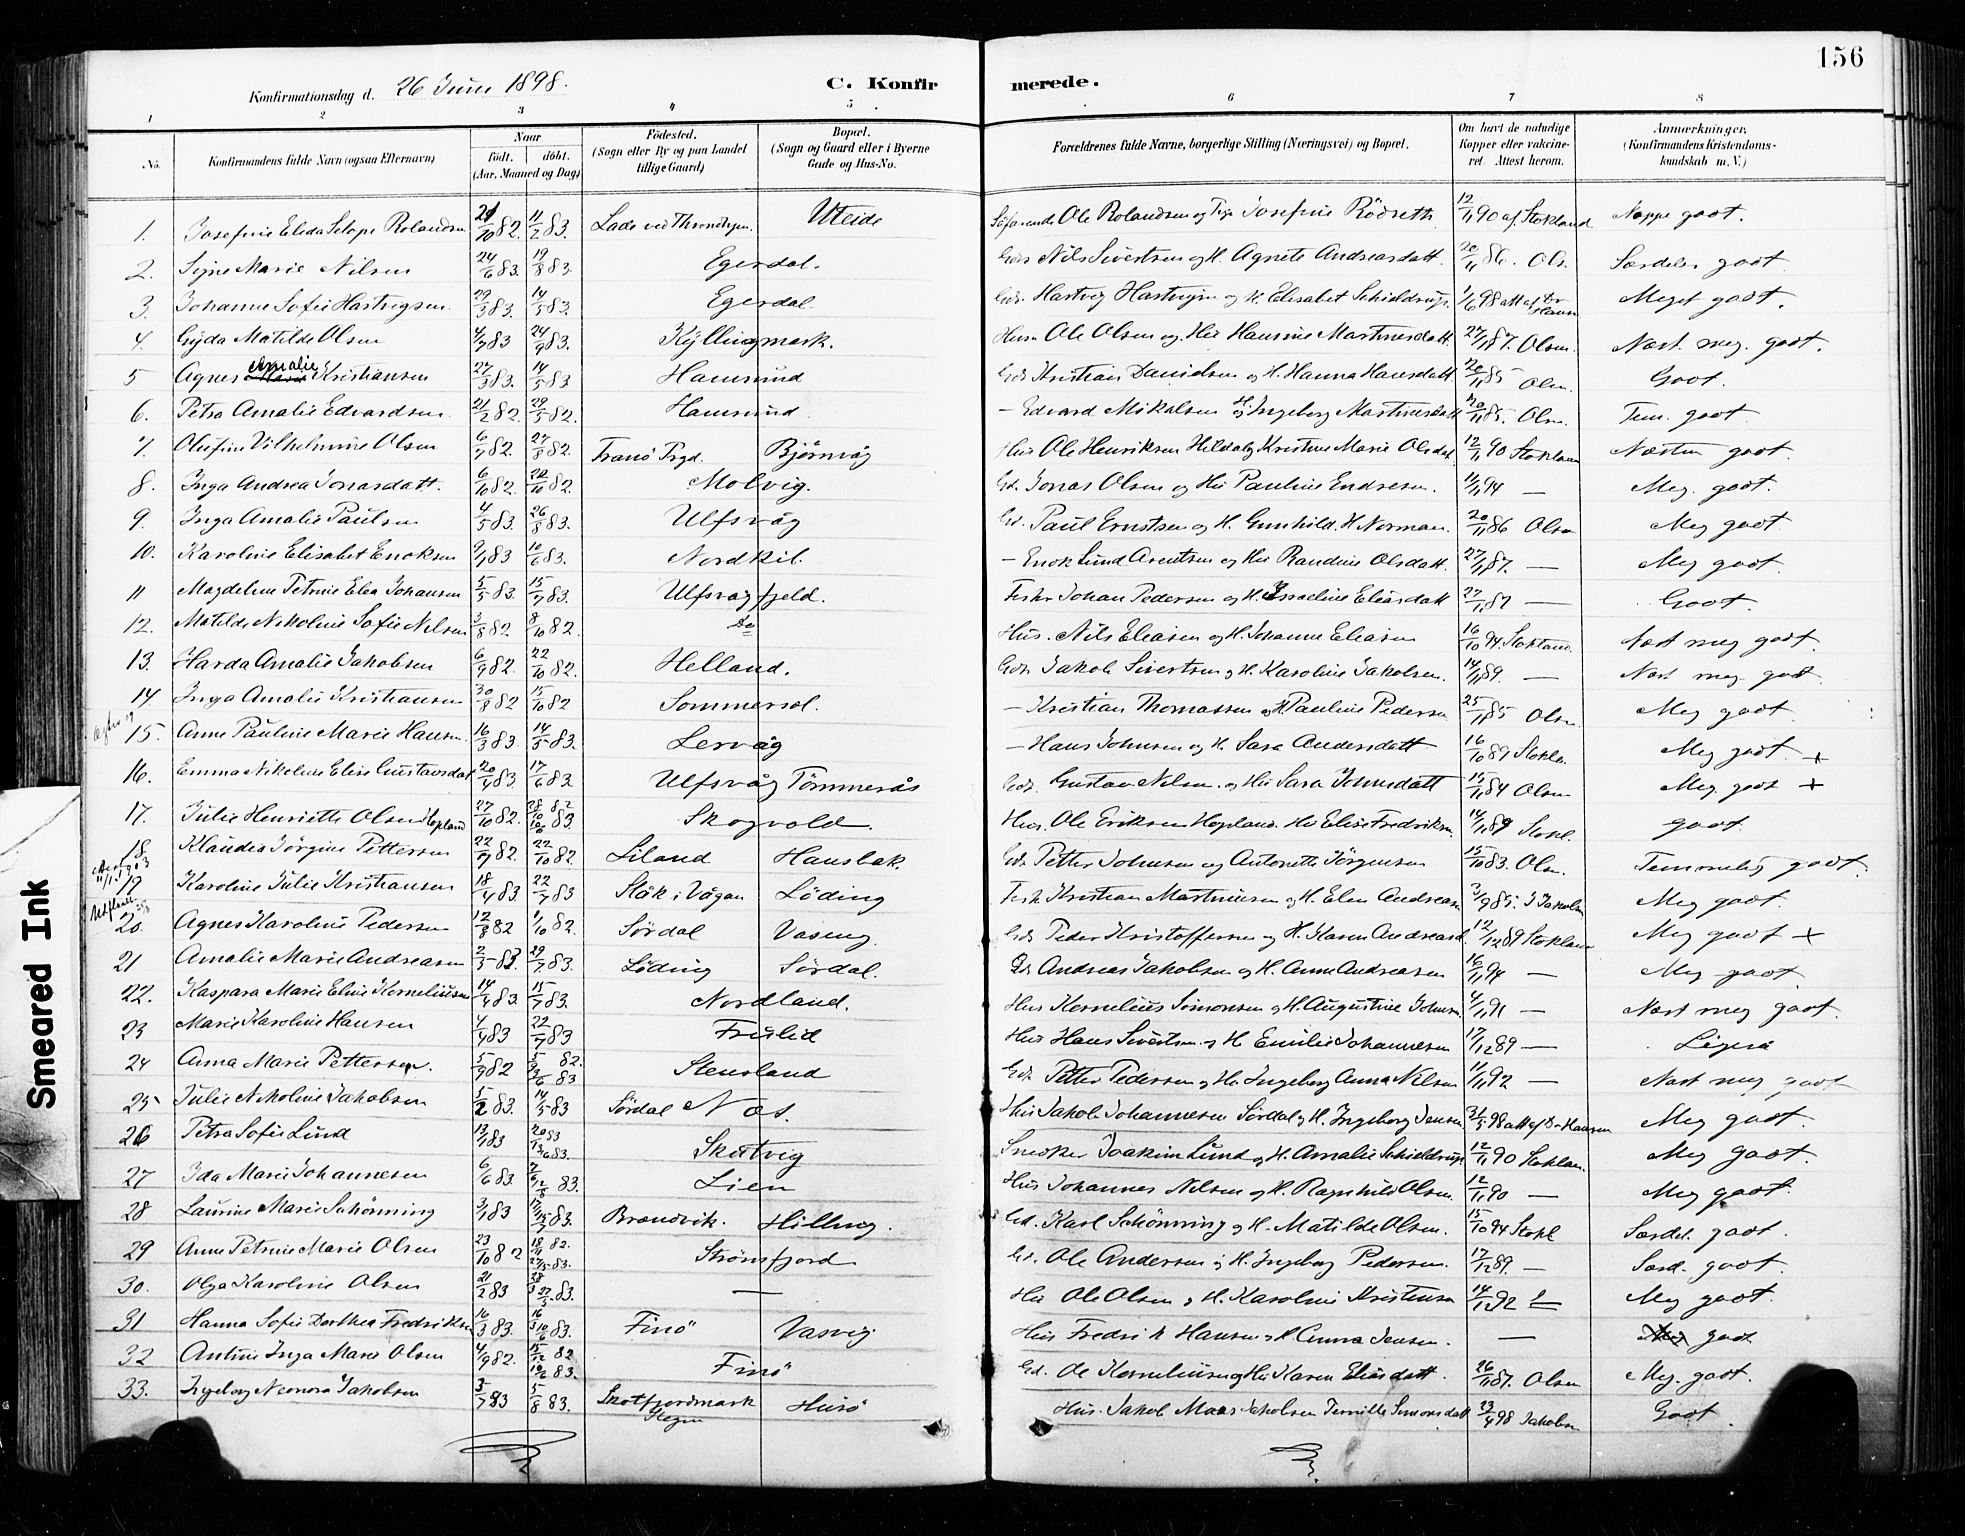 156
Konfirmationsdag d. 26 Juni 1898. C. Konfirmerede.
1 2 3 4 5 6 7 8
No. Konfirmandens fulde Navn (ogsaa Efternavn) Naar født. døbt. (Aar, Maaned og Dag) Fødested. (Sogn eller By og paa Landet tillige Gaard) Bopæl. (Sogn og Gaard eller i Byerne Gade og Hus-No. Forældrenes fulde Navne, borgerlige Stilling (Næringsvei) og Bopæl. Om havt de naturlige Kopper eller vakcineret. Attest herom. Anmærkninger. (Konfirmandens Kristendomskundskab m. V.)
1. Josefine Rolandsen 11/2 83. Lade ved Uteide Ole Rolandsen og Josefine Rödseth 12/11 90 af Stokland godt.
2. Signe Marie Nilsen 24/6 83. 19/8 83. Egerdal. Nils Sivertsen og H. Agnete Andreasdatt. 20/11 86. Ols. Særdeles godt
3. Johanne Sofie Hartvigsen 29/3 83. 14/5 83. Egerdal Hartvig Hartvigsen og H. Elisabet Schieldrup. 1/6 98 Meget godt.
4. Gyda Matilde Olsen 4/7 83 24/9 83. Kyllingmark. Ole Olsen og Hansine Martinesdatt. 27/11 87. Olsen. Næst. meg. godt.
5 Agnes Amalie Kristiansen 27/3 83. 14/5 83 Hamsund Kristian Danielsen og H. Hanna Hansdatt 20/11 85 Olsn. Godt.
6. Petra Amalie Edvardsen 21/2 82. 29/5 82. Hamsund. - Edvard Mikalsen og H. Ingeborg Martinusdatt 20/11 85. Olsn. Tem. godt
7. Olufine Vilhelmine Olsen 6/7 82. 27/8 82. Tranö Prgd. Bjørnvåg Hus Ole Henriksen Hildal og Kristine Marie Olsdat. 12/11 90 Stoklan Næsten godt.
8. Inga Andrea Jonasdatt. 6/10 82. 22/10 82. Molvig. Gd. Jonas Olsen og H. Pauline Endresen. 11/11 94 — Meg. godt.
9. Inga Amalie Paulsen 4/5 83. 26/8 83. Ulfsvåg Gd. Paul Ernstsen og H. Gunhild. H. Norman. 20/11 86 Olsn Meg godt
10. Karoline Elisabet Enoksen 9/1 83 10/6 83. Nordkil. - Enok Lund Arentsen og Randine Olsdatt. 27/11 87. — Meg godt.
11 Magdeline Petrine Elea Johansen 5/5 83. 15/7 83. Ulfsvagfjeld. Fisker Johan Pedersen og H. Israeline Eliasdatt 27/11 87 — Godt.
12. Matilde Nikoline Sofie Nilsen 3/8 82 8/10 82. Do Hus. Nils Eliasen og H. Johanne Eliasen 16/10 94. Stokland. Næst meg godt.
13. Harda Amalie Jakobsen 6/9 82. 22/10 82. Helland. Gdr. Jakob Sivertsen og H. Karoline Jakobsen. 14/11 89. — Næst meg godt
14. Inga Amalie Kristiansen 30/8 82 15/10 82 Sommersel. - Kristian Thomassen og H. Pauline Pedersn 25/11 85 Olsn Meg godt
15. Anne Pauline Marie Hansen. 16/3 83. 14/5 83. Lervåg - Hans Johnsen og H. Sara Andersdatt 16/10 89 Stokla. Meg godt +
16. Emma Nikoline Elise Gustavsdat 20/4 83 17/6 83 Ulfsvåg Tömmerås Gd. Gustav Nilsen og Sara Johnsdatt 84 Olsen Meg godt +
17. Julie Henriette Olsen Hopland 27/10 82. 83. Skogvold. Hus. Ole Eriksen Hopland. Elise Fredriksn. 14/11 89 Stokl. godt.
18. Klaudia Jörgine Pettersen 22/7 82. 22/10 82. Liland Hansbak. Gdr. Petter Johnsen og Antonette Jörgensen 15/10 83. Olsn. Temmelig godt.
19 Karoline Julie Kristiansen 18/4 83. 22/7 83 Slåk i Vågan Löding Fisk Kristian Martinusen og H. Elen Andreasn 3/9 85. J Jakobsn Meg godt.
20. Agnes Karoline Pedersen 12/8 82 1/10 82. Sördal Vaseng. Peder Kristoffersen og H. Karen Andreasd. 12/12 89 Stoklan Meg godt +
21 Amalie Marie Andreasen 2/5 83. 29/7 83. Löding Sördal. Andreas Jakobsen og H. Anne Andreasen 16/11 94 — Meg godt.
22. Kaspara Marie Eline Korneliusen 14/4 83. 15/7 83. Nordland. Hus Kornelius Simonsen og H. Augustine Johnsn. 4/11 91 — Næst meg godt.
23 Marie Karoline Hansen 4/4 83 22/7 83 Fruslid Hus Hans Sivertsen og H Emilie Johannesen 17/12 89 — Ligeså
24 Anna Marie Pettersen. 5/9 82 83 Stensland Gdr. Petter Pedersen og H. Ingeborg Anna Nilsen 11/11 92 — Næst meg godt
25 Julie Nikoline Jakobsen 5/2 83. 14/5 83 Sördal Næs. Hus Jakob Johannesen Sördal og H. Ingeborg Jensen 31/5 98 att af Dr Hansen Meg godt.
26 Petra Sofie Lund 13/1 83 Skutvig Snedker Joakim Lund og H. Amalie Schieldrup 12/11 90 Stoklan. Meg godt.
27 Ida Marie Johannesen 6/6 83. 83. Lien Hus Johannes Nilsen og H. Ragnhild Olsen. 12/11 90 — Meg godt.
28 Laurine Marie Schönning 3/1 83 83. Brandvik. Gd. Karl Schönning og H. Matilde Olsen. 15/10 94 Stokl Særdel. godt.
29 Anne Petrine Marie Olsen 23/10 82 83. Strömsfjord Gd. Ole Andersen og H. Ingeborg Pedersen. 17/12 89. — Særd. godt.
30. Olga Karoline Olsen 21/2 83 83. — Hus Ole Olsen og H. Karoline Kristensen 14/12 92 Meg godt.
31 Hanna Sofie Dorthea Fredriksn 16/3 83. 83. Finö Vasvig Hus Fredrik Hansen og H. Anna Jensen. — godt
32 Antine Inga Marie Olsen 4/9 82. 83. Finö Gd. Ole Korneliusen og Karen Eliasdatt. 26/11 87. Olsen Meg. godt.
33. Ingeborg Neonora Jakobsen 3/7 83 5/8 83. Skotfjordmark Stegen Husö Hus. Jakob Maas Jakobsen Simonsdatt 23/4 98 Jakobsn Godt
Smeared Ink